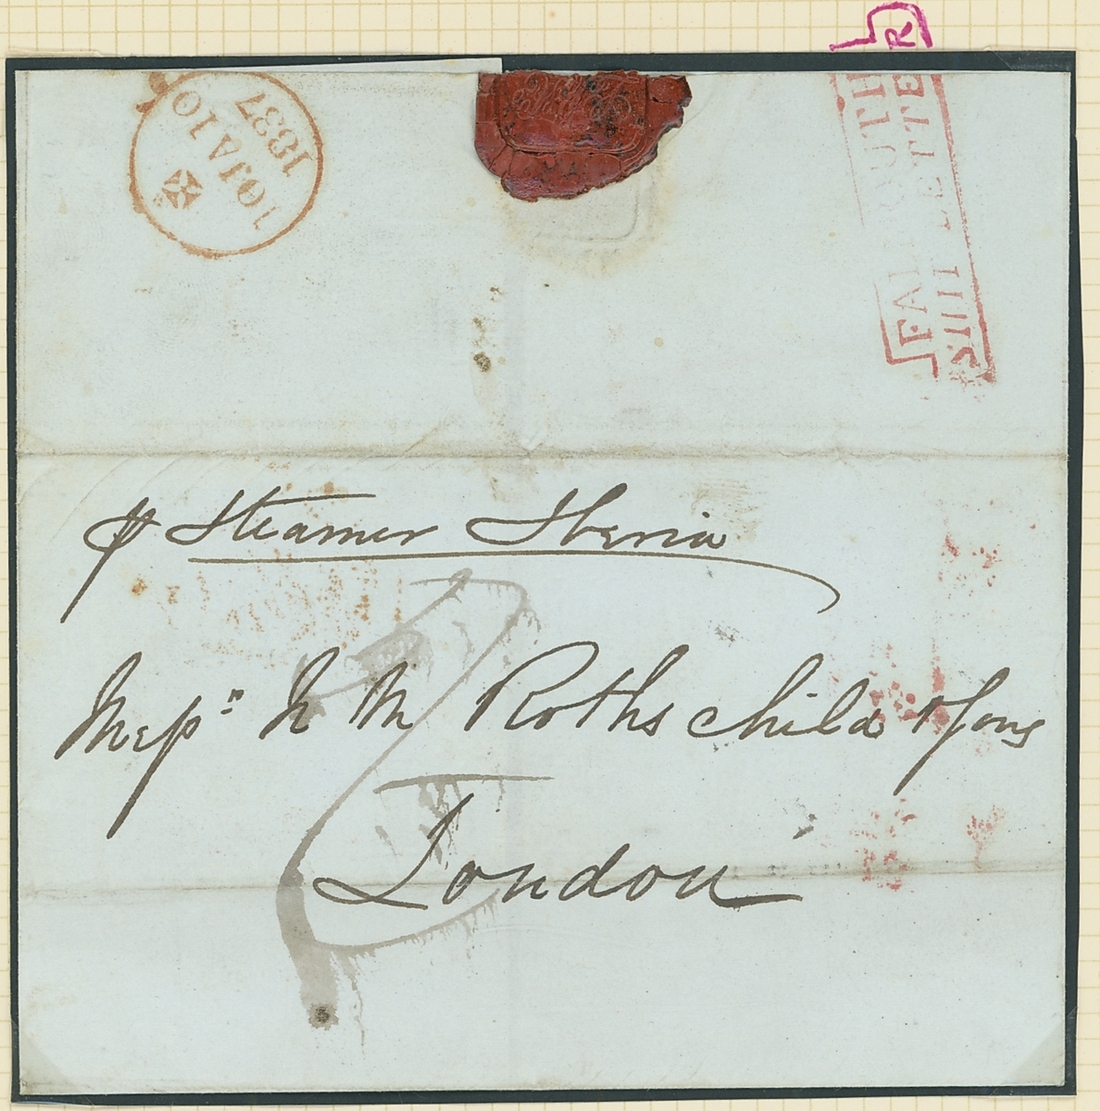 10 JA 10
1837
FALMOUTH
SHIP LETTER
p Steamer Iberia
Messrs N M Rothschild & Sons
London